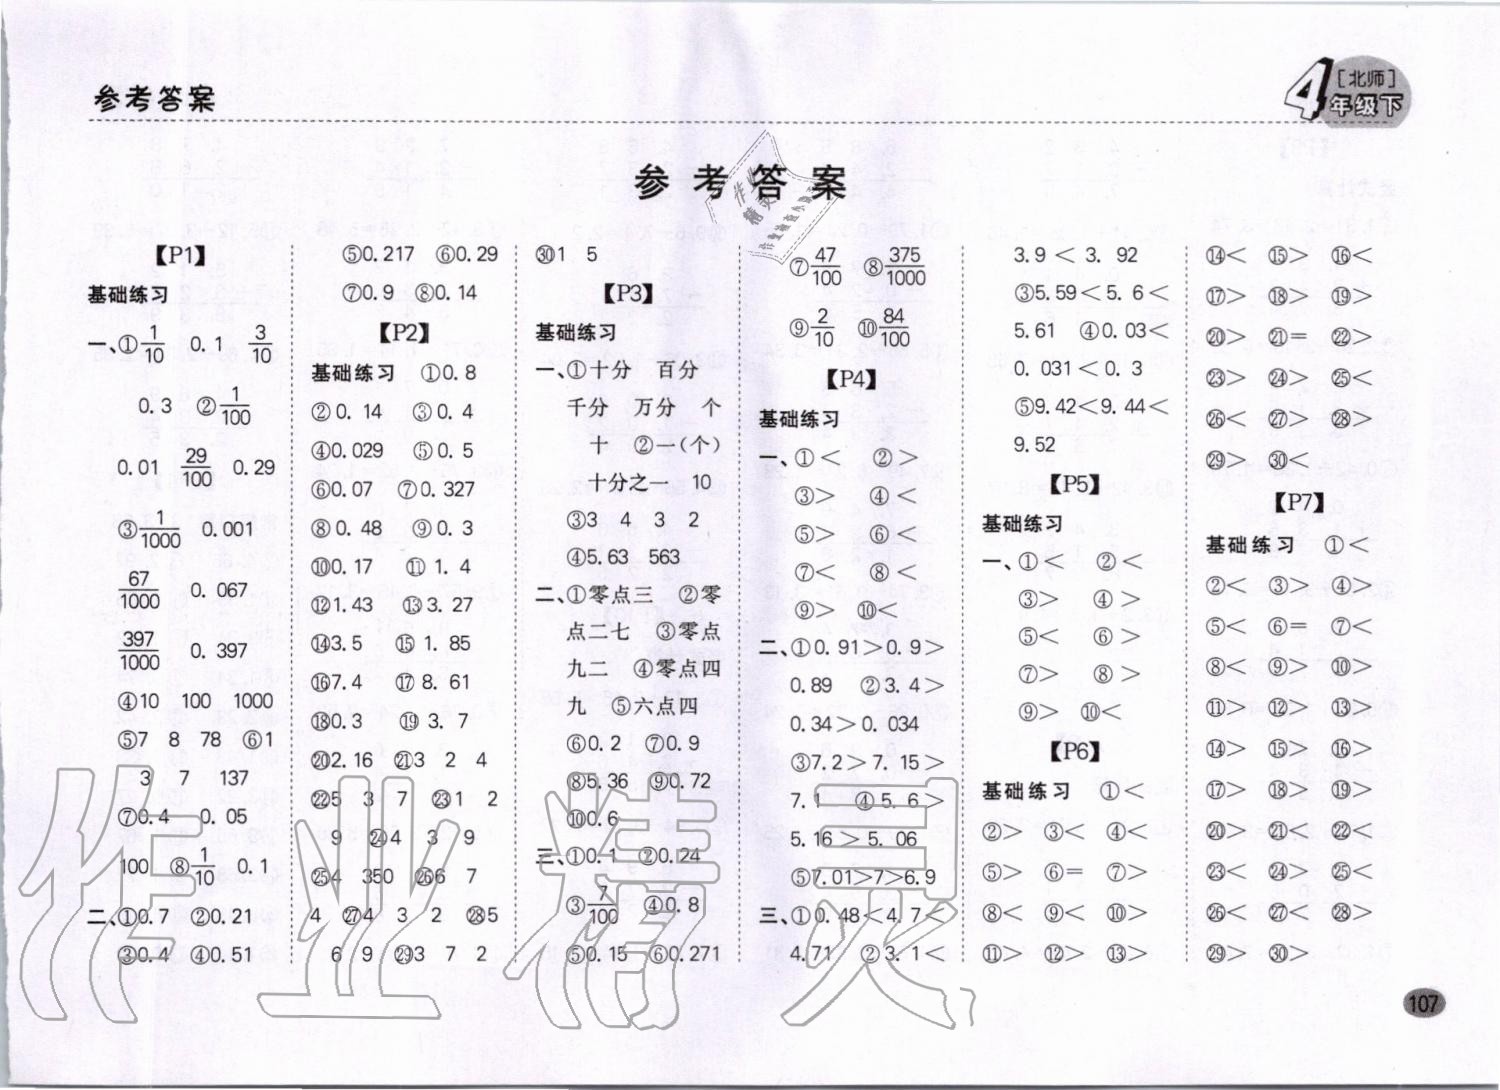 参考答案
4[北师]
年级下
参考答案
【P1】
基础练习
一、①1/10 0.1 3/10
0.3 ②1/100
0.01 29/100 0.29
③1/1000 0.001
67/1000 0.067
397/1000 0.397
④10 100 1000
⑤7 8 78 ⑥1
3 7 137
⑦0.4 0.05
100 ⑧1/10 0.1
二、①0.7 ②0.21
③0.4 ④0.51
⑤0.217 ⑥0.29
⑦0.9 ⑧0.14
【P2】
基础练习 ①0.8
②0.14 ③0.4
④0.029 ⑤0.5
⑥0.07 ⑦0.327
⑧0.48 ⑨0.3
⑩0.17 ⑪1.4
⑫1.43 ⑬3.27
⑭3.5 ⑮1.85
⑯7.4 ⑰8.61
⑱0.3 ⑲3.7
⑳2.16 ㉑3 2 4
㉒5 3 7 ㉓1 2
9 ㉔4 3 9
㉕4 350 ㉖6 7
4 ㉗4 3 2 ㉘5
6 9 ㉙3 7 2
㉚1 5
【P3】
基础练习
一、①十分 百分
千分 万分 个
十 ②一(个)
十分之一 10
③3 4 3 2
④5.63 563
二、①零点三 ②零
点二七 ③零点
九二 ④零点四
九 ⑤六点四
⑥0.2 ⑦0.9
⑧5.36 ⑨0.72
⑩0.6
三、①0.1 ②0.24
③7/100 ④0.8
⑤0.15 ⑥0.271
⑦47/100 ⑧375/1000
⑨2/10 ⑩84/100
【P4】
基础练习
一、①< ②>
③> ④<
⑤> ⑥<
⑦< ⑧<
⑨> ⑩<
二、①0.91>0.9>
0.89 ②3.4>
0.34>0.034
③7.2>7.15>
7.1 ④5.6>
5.16>5.06
⑤7.01>7>6.9
三、①0.48<4.7<
4.71 ②3.1<
3.9<3.92
③5.59<5.6<
5.61 ④0.03<
0.031<0.3
⑤9.42<9.44<
9.52
【P5】
基础练习
一、①< ②<
③> ④>
⑤< ⑥>
⑦> ⑧>
⑨> ⑩<
【P6】
基础练习 ①<
②> ③< ④<
⑤> ⑥= ⑦>
⑧< ⑨< ⑩>
⑪> ⑫> ⑬>
⑭< ⑮> ⑯<
⑰> ⑱> ⑲>
⑳> ㉑= ㉒>
㉓> ㉔> ㉕<
㉖< ㉗> ㉘>
㉙> ㉚<
【P7】
基础练习 ①<
②< ③> ④>
⑤< ⑥= ⑦<
⑧< ⑨> ⑩>
⑪> ⑫< ⑬>
⑭> ⑮> ⑯>
⑰> ⑱> ⑲>
⑳> ㉑> ㉒<
㉓< ㉔> ㉕<
㉖< ㉗< ㉘>
㉙> ㉚>
107
作业精灵